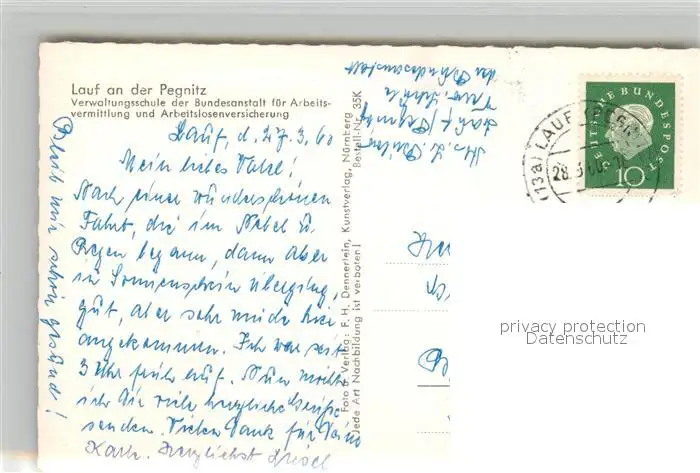 Lauf an der Pegnitz
Verwaltungsschule der Bundesanstalt für Arbeits-
vermittlung und Arbeitslosenversicherung
Lauf, d. 27.3.60
Mein lieber
Nach einer wunderschönen
Fahrt, die im Nebel u.
Regen begann, dann aber
in Sonnenschein überging,
gut, aber sehr müde hier
angekommen. Ich war seit
3 Uhr früh auf. Nun möcht
ich Dir viele herzliche Grüße
senden. Vielen Dank für Deine
Karte. Herzlichst
Bleib mir schön gesund!
Foto u. Verlag: F. H. Dennerlein, Kunstverlag, Nürnberg
Jede Art Nachbildung ist verboten!
Bestell-Nr. 35K
der Bundesanstalt
Lauf / Pegnitz
DEUTSCHE BUNDESPOST
10
(13a) LAUF (PEGN
28.3.60
privacy protection
Datenschutz